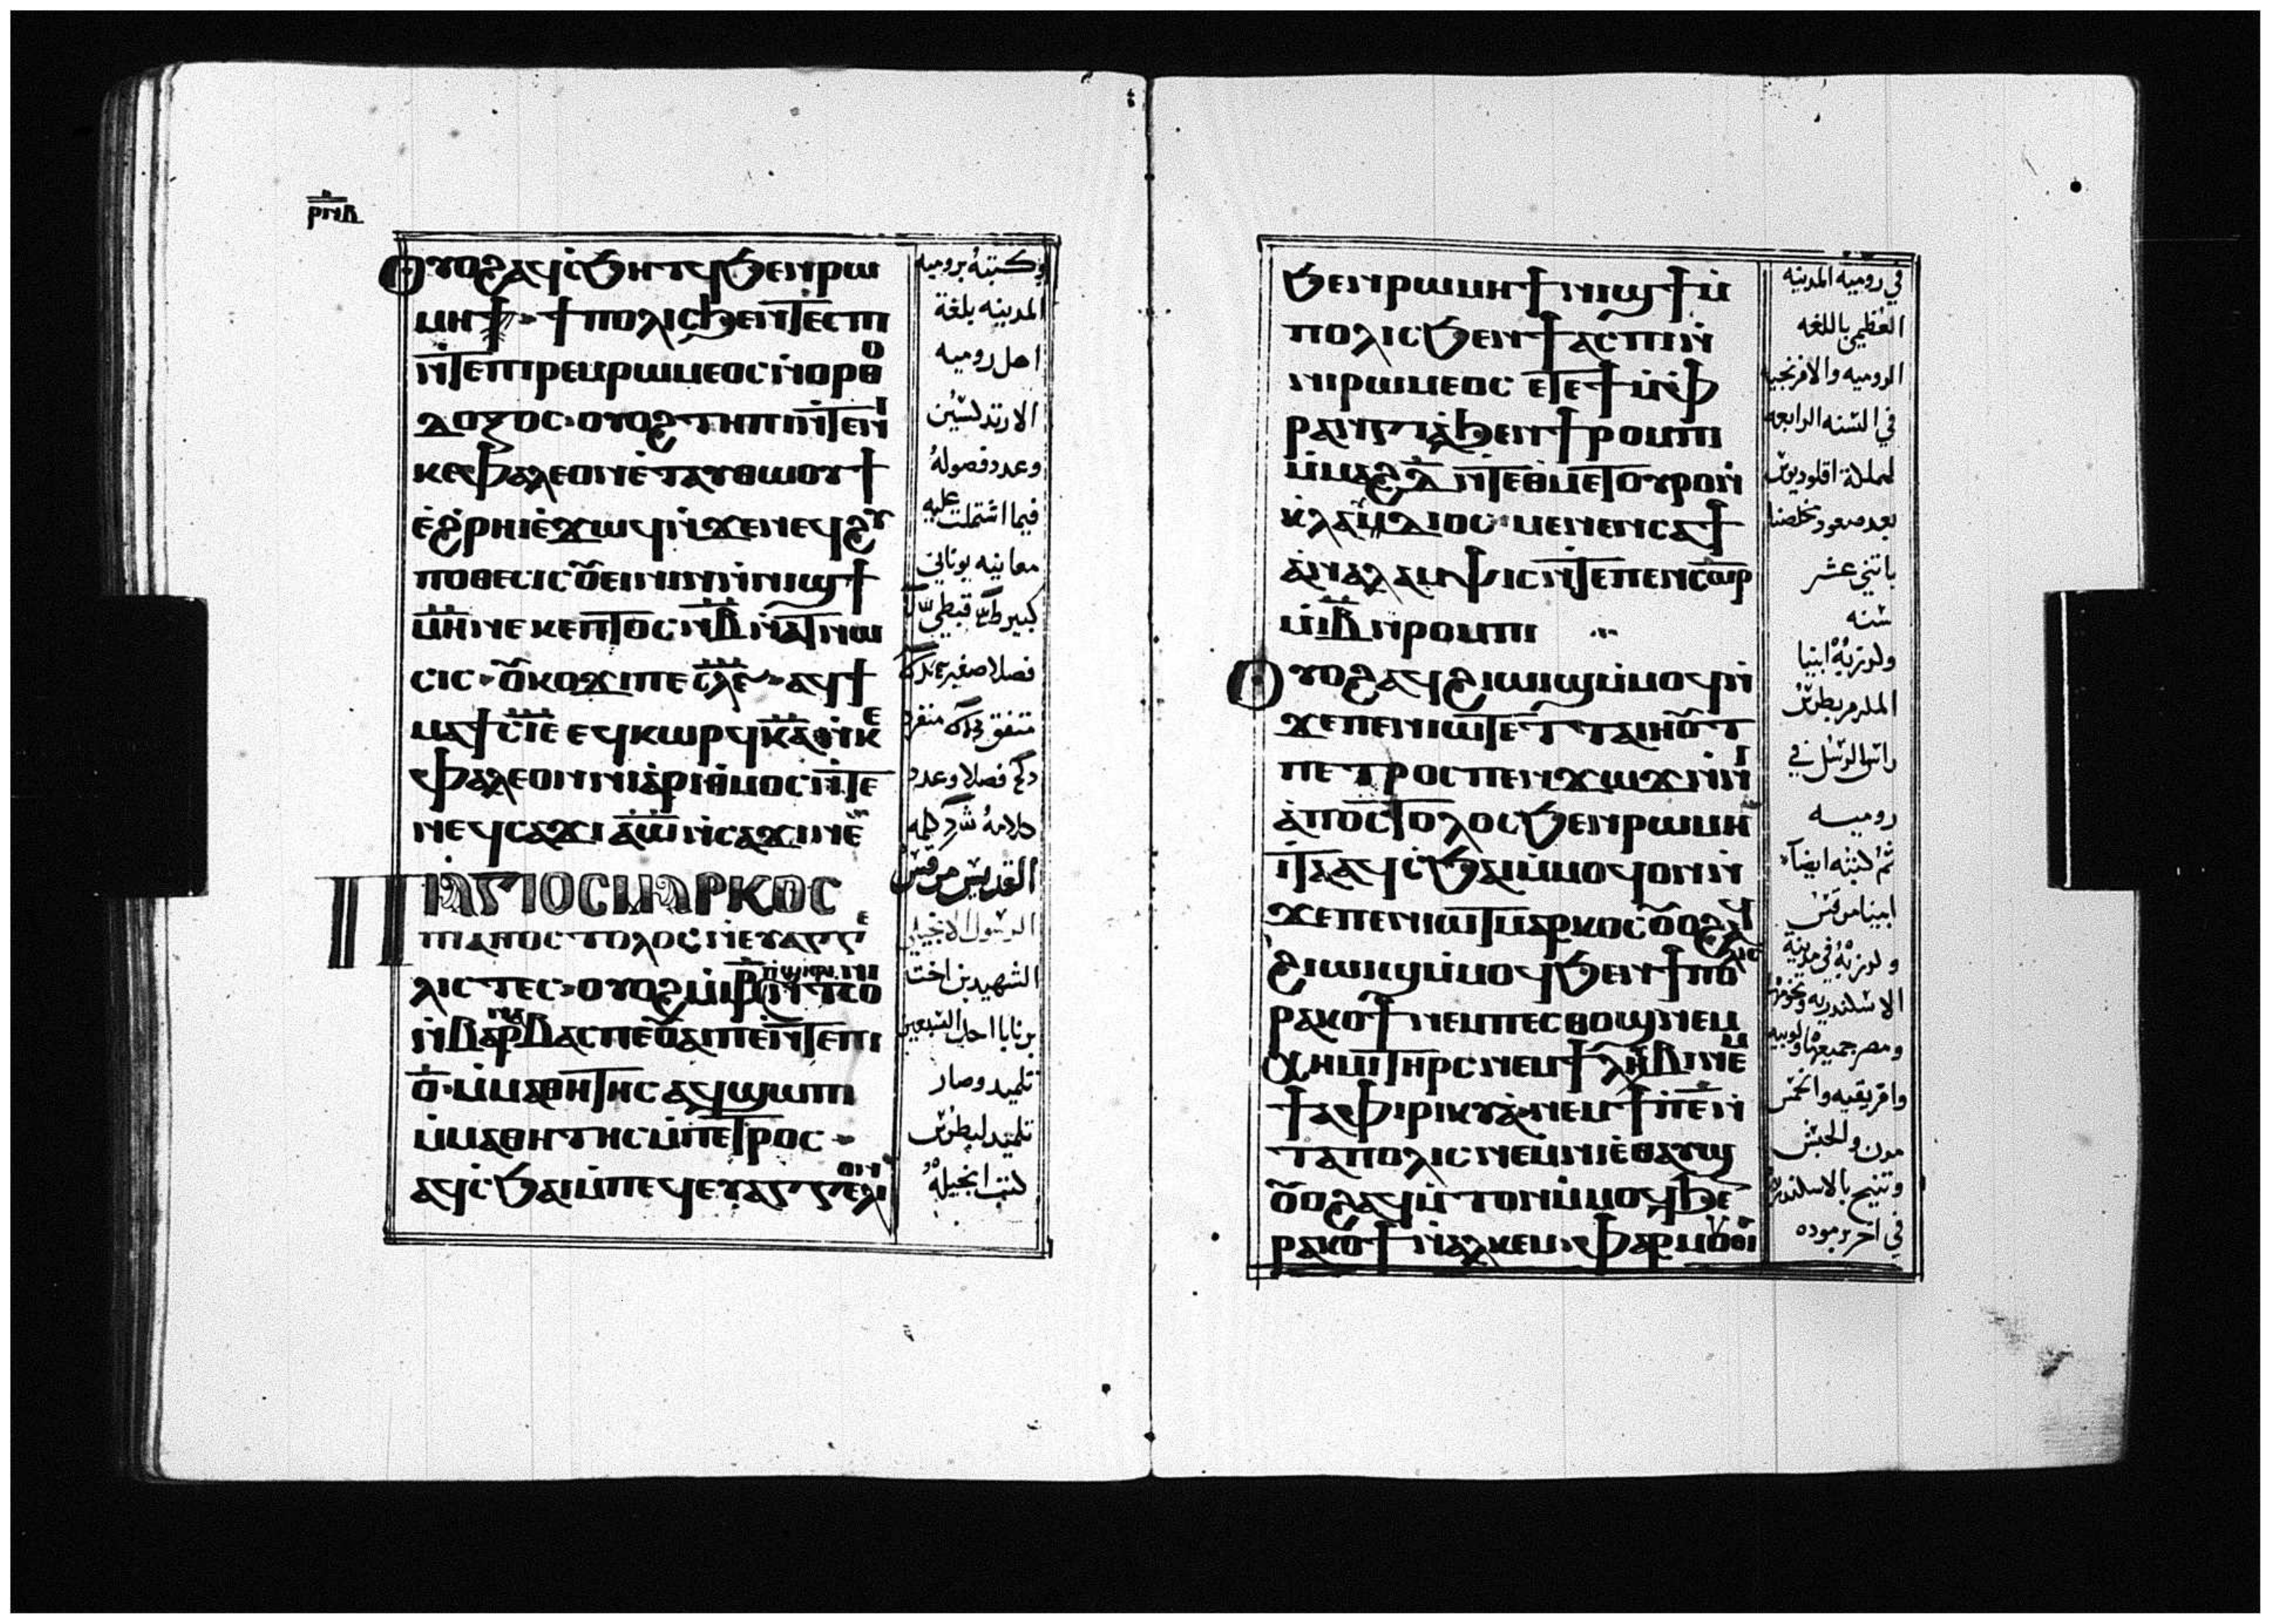 ⲣⲛⲃ
Ⲟⲩⲟϩ ⲁϥⲥϧⲏⲧϥ ϧⲉⲛ ⲣⲱ
ⲙⲏ ϯ ⲡⲟⲗⲓⲥ ϧⲉⲛ ⲧⲉⲥⲡⲓ
ⲛⲧⲉ ⲡⲓⲣⲉⲙⲣⲱⲙⲉⲟⲥ ⲛⲟⲣⲑⲟ
ⲇⲟⲝⲟⲥ ⲟⲩⲟϩ ⲧⲏⲡⲓ ⲛⲧⲉ ⲛⲓ
ⲕⲉⲫⲁⲗⲉⲟⲛ ⲉⲧⲁⲩⲑⲱⲟⲩϯ
ⲉϩⲣⲏⲓ ⲉϫⲱϥ ⲛϫⲉ ⲛⲉϥϩⲩ
ⲡⲟⲑⲉⲥⲓⲥ ⲟⲩⲉⲓⲛⲓⲛ ⲛⲛⲓϣϯ
ⲙⲏ ⲛⲉ ⲕⲉⲡⲧⲟⲥ ⲛⲃ ⲛⲁⲧⲛⲱ
ⲥⲓⲥ ⲟⲩⲕⲟϫⲓ ⲡⲉ ⲥⲗⲉ ⲁϥϯ
ⲙⲁϯ ⲥⲓⲉ ⲉϥⲕⲱⲣϥ ⲕⲁ ⲛⲕⲉ
ⲫⲁⲗⲉⲟⲛ ⲛⲓⲁⲣⲓⲑⲙⲟⲥ ⲛⲧⲉ
ⲛⲉϥⲥⲁϫⲓ ⲁⲱ ⲛⲥⲁϫⲓ ⲛⲉ
Ⲡⲓⲁⲅⲓⲟⲥ ⲙⲁⲣⲕⲟⲥ
ⲡⲓⲁⲡⲟⲥⲧⲟⲗⲟⲥ ⲛⲉⲩⲁⲅⲅⲉ
ⲗⲓⲥⲧⲉⲥ ⲟⲩⲟϩ ⲙⲙⲣ ⲡϣⲏⲣⲓ ⲛⲧⲥⲟ
ⲛⲃⲁⲣⲛⲁⲃⲁⲥ ⲡⲉ ⲟⲩⲁⲓ ⲡⲉ ⲛⲧⲉ ⲡⲓ
ⲟ ⲙⲙⲁⲑⲏⲧⲏⲥ ⲁϥϣⲱⲡⲓ
ⲙⲙⲁⲑⲏⲧⲏⲥ ⲙⲡⲉⲧⲣⲟⲥ
ⲁϥⲥϧⲁⲓ ⲙⲡⲉϥⲉⲩⲁⲅⲅⲉⲗⲓⲟⲛ
وكتبه برومية
المدينه بلغة
اهل روميه
الارتدكسيين
وعدد فصوله
فيما اشتملت عليه
معانيه يوناني
كبير قبطي
فصلا صغير
متفق منفرد
فصلا وعدد
كلامه كلمه
القديس مرقس
الرسول الانجيلي
الشهيد بن اخت
برنابا احد السبعين
تلميد وصار
تلميد لبطرس
كتب انجيله
ϧⲉⲛ ⲣⲱⲙⲏ ϯⲛⲓϣϯ ⲙ
ⲡⲟⲗⲓⲥ ϧⲉⲛ ϯⲁⲥⲡⲓ ⲛ
ⲛⲓⲣⲱⲙⲉⲟⲥ ⲉⲧⲉ ϯⲙⲫ
ⲣⲁⲛⲅⲓⲁ ϧⲉⲛ ϯⲣⲟⲙⲡⲓ
ⲙⲙⲁϩⲇ ⲛⲧⲉ ⲑⲙⲉⲧⲟⲩⲣⲟ ⲛ
ⲕⲗⲁⲩⲇⲓⲟⲥ ⲙⲉⲛⲉⲛⲥⲁ ϯ
ⲁⲛⲁⲗⲁⲙⲯⲓⲥ ⲛⲧⲉ ⲡⲉⲛⲥⲱⲣ
ⲙⲓⲃ ⲛⲣⲟⲙⲡⲓ
Ⲟⲩⲟϩ ⲁϥϩⲓⲱⲓϣ ⲙⲙⲟϥ ⲛ
ϫⲉ ⲡⲉⲛⲓⲱⲧ ⲉⲧⲧⲁⲓⲏⲟⲩⲧ
ⲡⲉⲧⲣⲟⲥ ⲡⲉⲛϫⲱϫ ⲛⲛⲓ
ⲁⲡⲟⲥⲧⲟⲗⲟⲥ ϧⲉⲛ ⲣⲱⲙⲏ
ⲓⲧⲁ ⲁϥⲥϧⲁⲓ ⲙⲙⲟϥ ⲟⲛ ⲛ
ϫⲉ ⲡⲉⲛⲓⲱⲧ ⲙⲁⲣⲕⲟⲥ ⲟⲩⲟϩ ⲁϥ
ϩⲓⲱⲓϣ ⲙⲙⲟϥ ϧⲉⲛ ϯⲡⲟⲗⲓⲥ
ⲣⲁⲕⲟϯ ⲛⲉⲙ ⲡⲉⲥⲑⲟϣ ⲛⲉⲙ
ⲭⲏⲙⲓ ⲧⲏⲣⲥ ⲛⲉⲙ ϯⲗⲏⲃⲓ ⲛⲉⲙ
ϯⲁⲫⲣⲓⲕⲩⲁ ⲛⲉⲙ ϯⲡⲉⲛ
ⲧⲁⲡⲟⲗⲓⲥ ⲛⲉⲙ ⲛⲓⲉⲑⲁⲩϣ
ⲟⲩⲟϩ ⲁϥⲙⲧⲟⲛ ⲙⲙⲟϥ ϧⲉⲛ
ⲣⲁⲕⲟϯ ⲛⲁⲗⲕⲉⲙ ⲫⲁⲣⲙⲟⲩⲑⲓ
في روميه المدينه
العظمى باللغه
الروميه والافرنجيه
في السنه الرابعه
لمملكة اقلوديوس
بعد صعود مخلصنا
باثني عشر
سنه
وكرز به ابينا
المكرم بطرس
راس الرسل في
روميه
ثم كتبه ايضا
ابينا مرقس
وكرز به في مدينة
الاسكندريه وتخومها
ومصر جميعها ولوبيه
وافريقيه والخمس
مدن والحبش
وتنيح بالاسكندريه
في اخر برموده